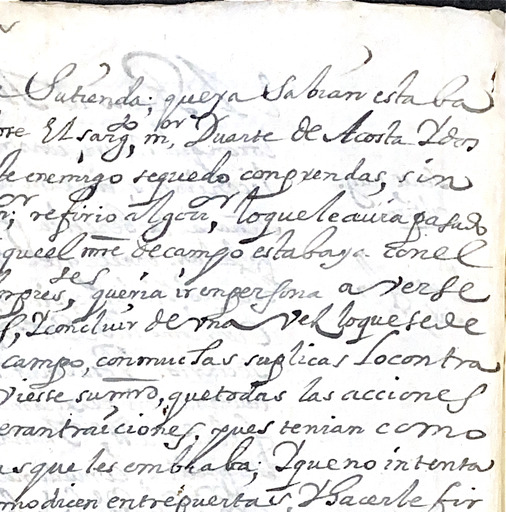 Su tienda; que ya Sabian estaba
El sargto mor, Duarte de Acosta Y dos
enemigo se quedo con prendas, sin
refirio al gor, lo que le auia pasado
que el mre de campo estaba ya con el
queria ir en persona a verse
Y concluir de vna vez lo que se de
campo, con muchas suplicas lo contra
su mrd, que todas las acciones
eran traiciones, pues tenian como
que les embiaba; Y que no intenta
mo dicen entre puertas, Y hacerle fir